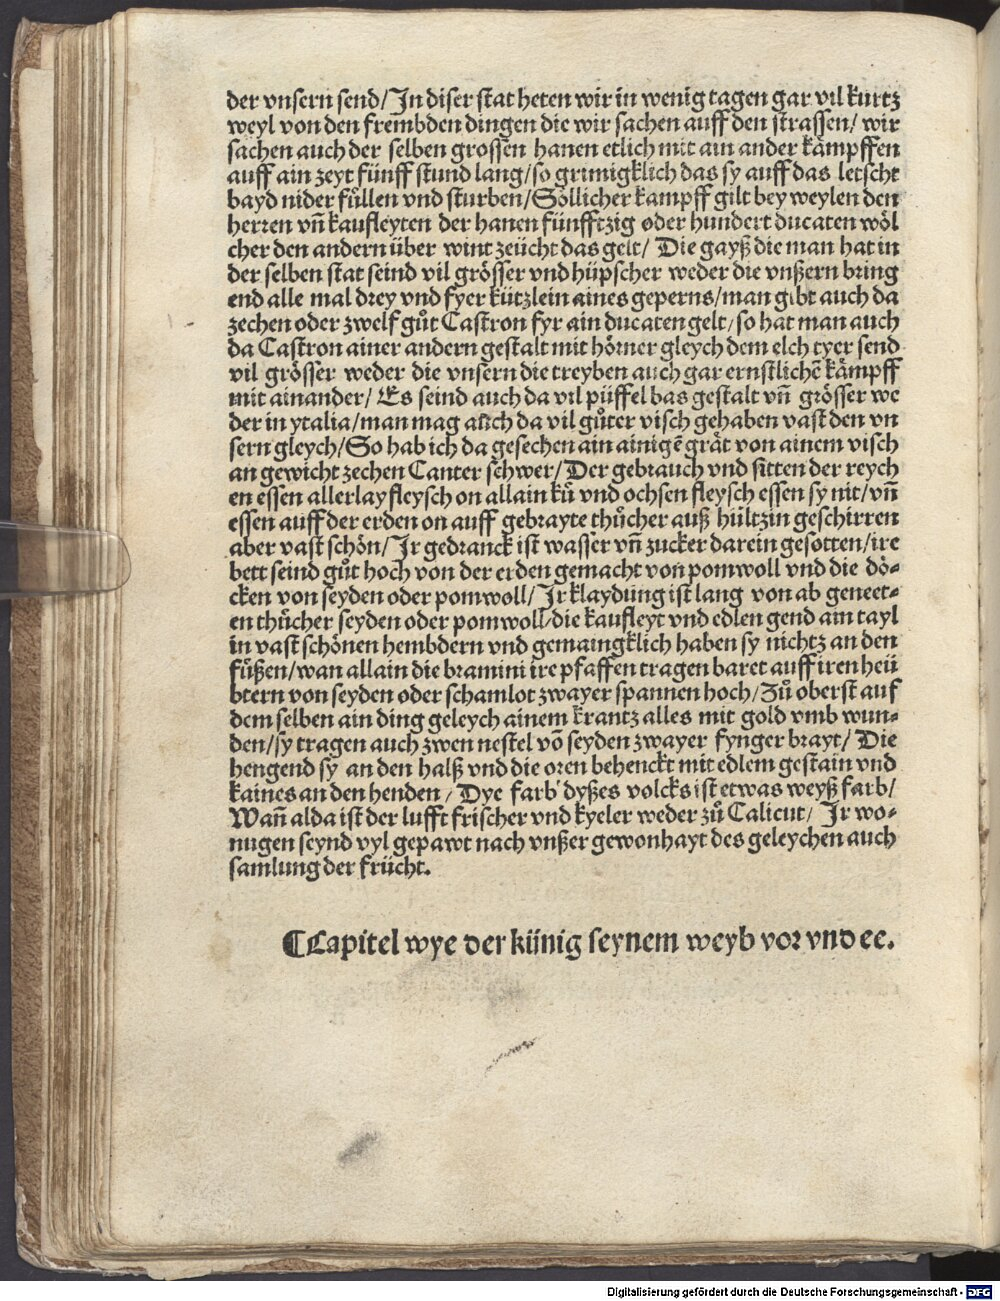 der vnsern send/ In diser stat heten wir in wenig tagen gar vil kurtz
weyl von den frembden dingen die wir sachen auff den strassen/ wir
sachen auch der selben grossen hanen etlich mit ain ander kämpffen
auff ain zeyt fünff stund lang/ so grimigklich das sy auff das letscht
bayd nider füllen vnd sturben/ Söllicher kampff gilt bey weylen den
herren vn̄ kaufleyten der hanen fünfftzig oder hundert ducaten wöl
cher den andern über wint zeücht das gelt/ Die gayß die man hat in
der selben stat seind vil grösser vnd hüpscher weder die vnßern bring
end alle mal drey vnd fyer kützlein aines geperns/ man gibt auch da
zechen oder zwelf gůt Castron fyr ain ducaten gelt/ so hat man auch
da Castron ainer andern gestalt mit hörner gleych dem elch tyer send
vil grösser weder die vnsern die treyben auch gar ernstlichē kämpff
mit ainander/ Es seind auch da vil püffel bas gestalt vn̄ grösser we
der in ytalia/ man mag auch da vil gůter visch gehaben vast den vn
sern gleych/ So hab ich da gesechen ain ainigē grät von ainem visch
an gewicht zechen Canter schwer/ Der gebrauch vnd sitten der reych
en essen allerlay fleysch on allain ků vnd ochsen fleysch essen sy nit/ vn̄
essen auff der erden on auff gebrayte thůcher auß hültzin geschirren
aber vast schön/ Ir gedranck ist wasser vn̄ zucker darein gesotten/ ire
bett seind gůt hoch von der erden gemacht von pomwoll vnd die dö-
cken von seyden oder pomwoll/ Ir klaydung ist lang von ab geneet-
en thůcher seyden oder pomwoll/ die kaufleyt vnd edlen gend ain tayl
in vast schönen hembdern vnd gemaingklich haben sy nichtz an den
füßen/ wan allain die bramini ire pfaffen tragen baret auff iren heü
btern von seyden oder schamlot zwayer spannen hoch/ Zů oberst auf
dem selben ain ding geleych ainem krantz alles mit gold vmb wun-
den/ sy tragen auch zwen nestel vō seyden zwayer fynger brayt/ Die
hengend sy an den halß vnd die oren behenckt mit edlem gestain vnd
kaines an den henden/ Dye farb dyßes volcks ist etwas weyß farb/
Wan̄ alda ist der lufft frischer vnd kyeler weder zů Calicut/ Ir wo-
nugen seynd vyl gepawt nach vnßer gewonhayt des geleychen auch
samlung der frücht.
¶ Capitel wye der künig seynem weyb vor vnd ee.
Digitalisierung gefördert durch die Deutsche Forschungsgemeinschaft - DFG